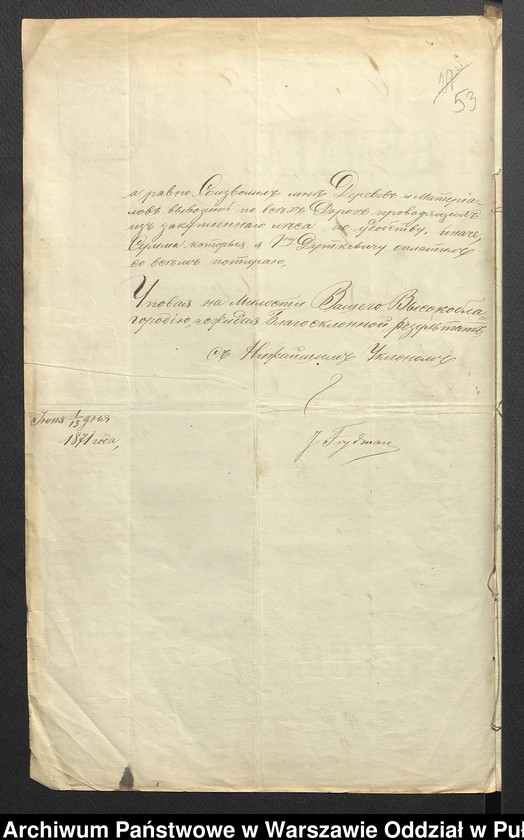 53
а равно Соизволилъ мнѣ Деревево и Матеріа-
ловъ вывозити по всѣхъ Дорогъ провадящихъ
изъ закупленнаго лѣса по удобству. иначе,
Сумма которыя я Гну Дуткевичу оплатилъ
во всѣмъ потираю,
Уповая на Милости Вашего Высокобла-
городію, ожидая Благосклонной результатъ
съ Нижайшимъ Уклономъ
Іюня 1/13 дня
1871 года,
J
Archiwum Państwowe w Warszawie Oddział w Pu